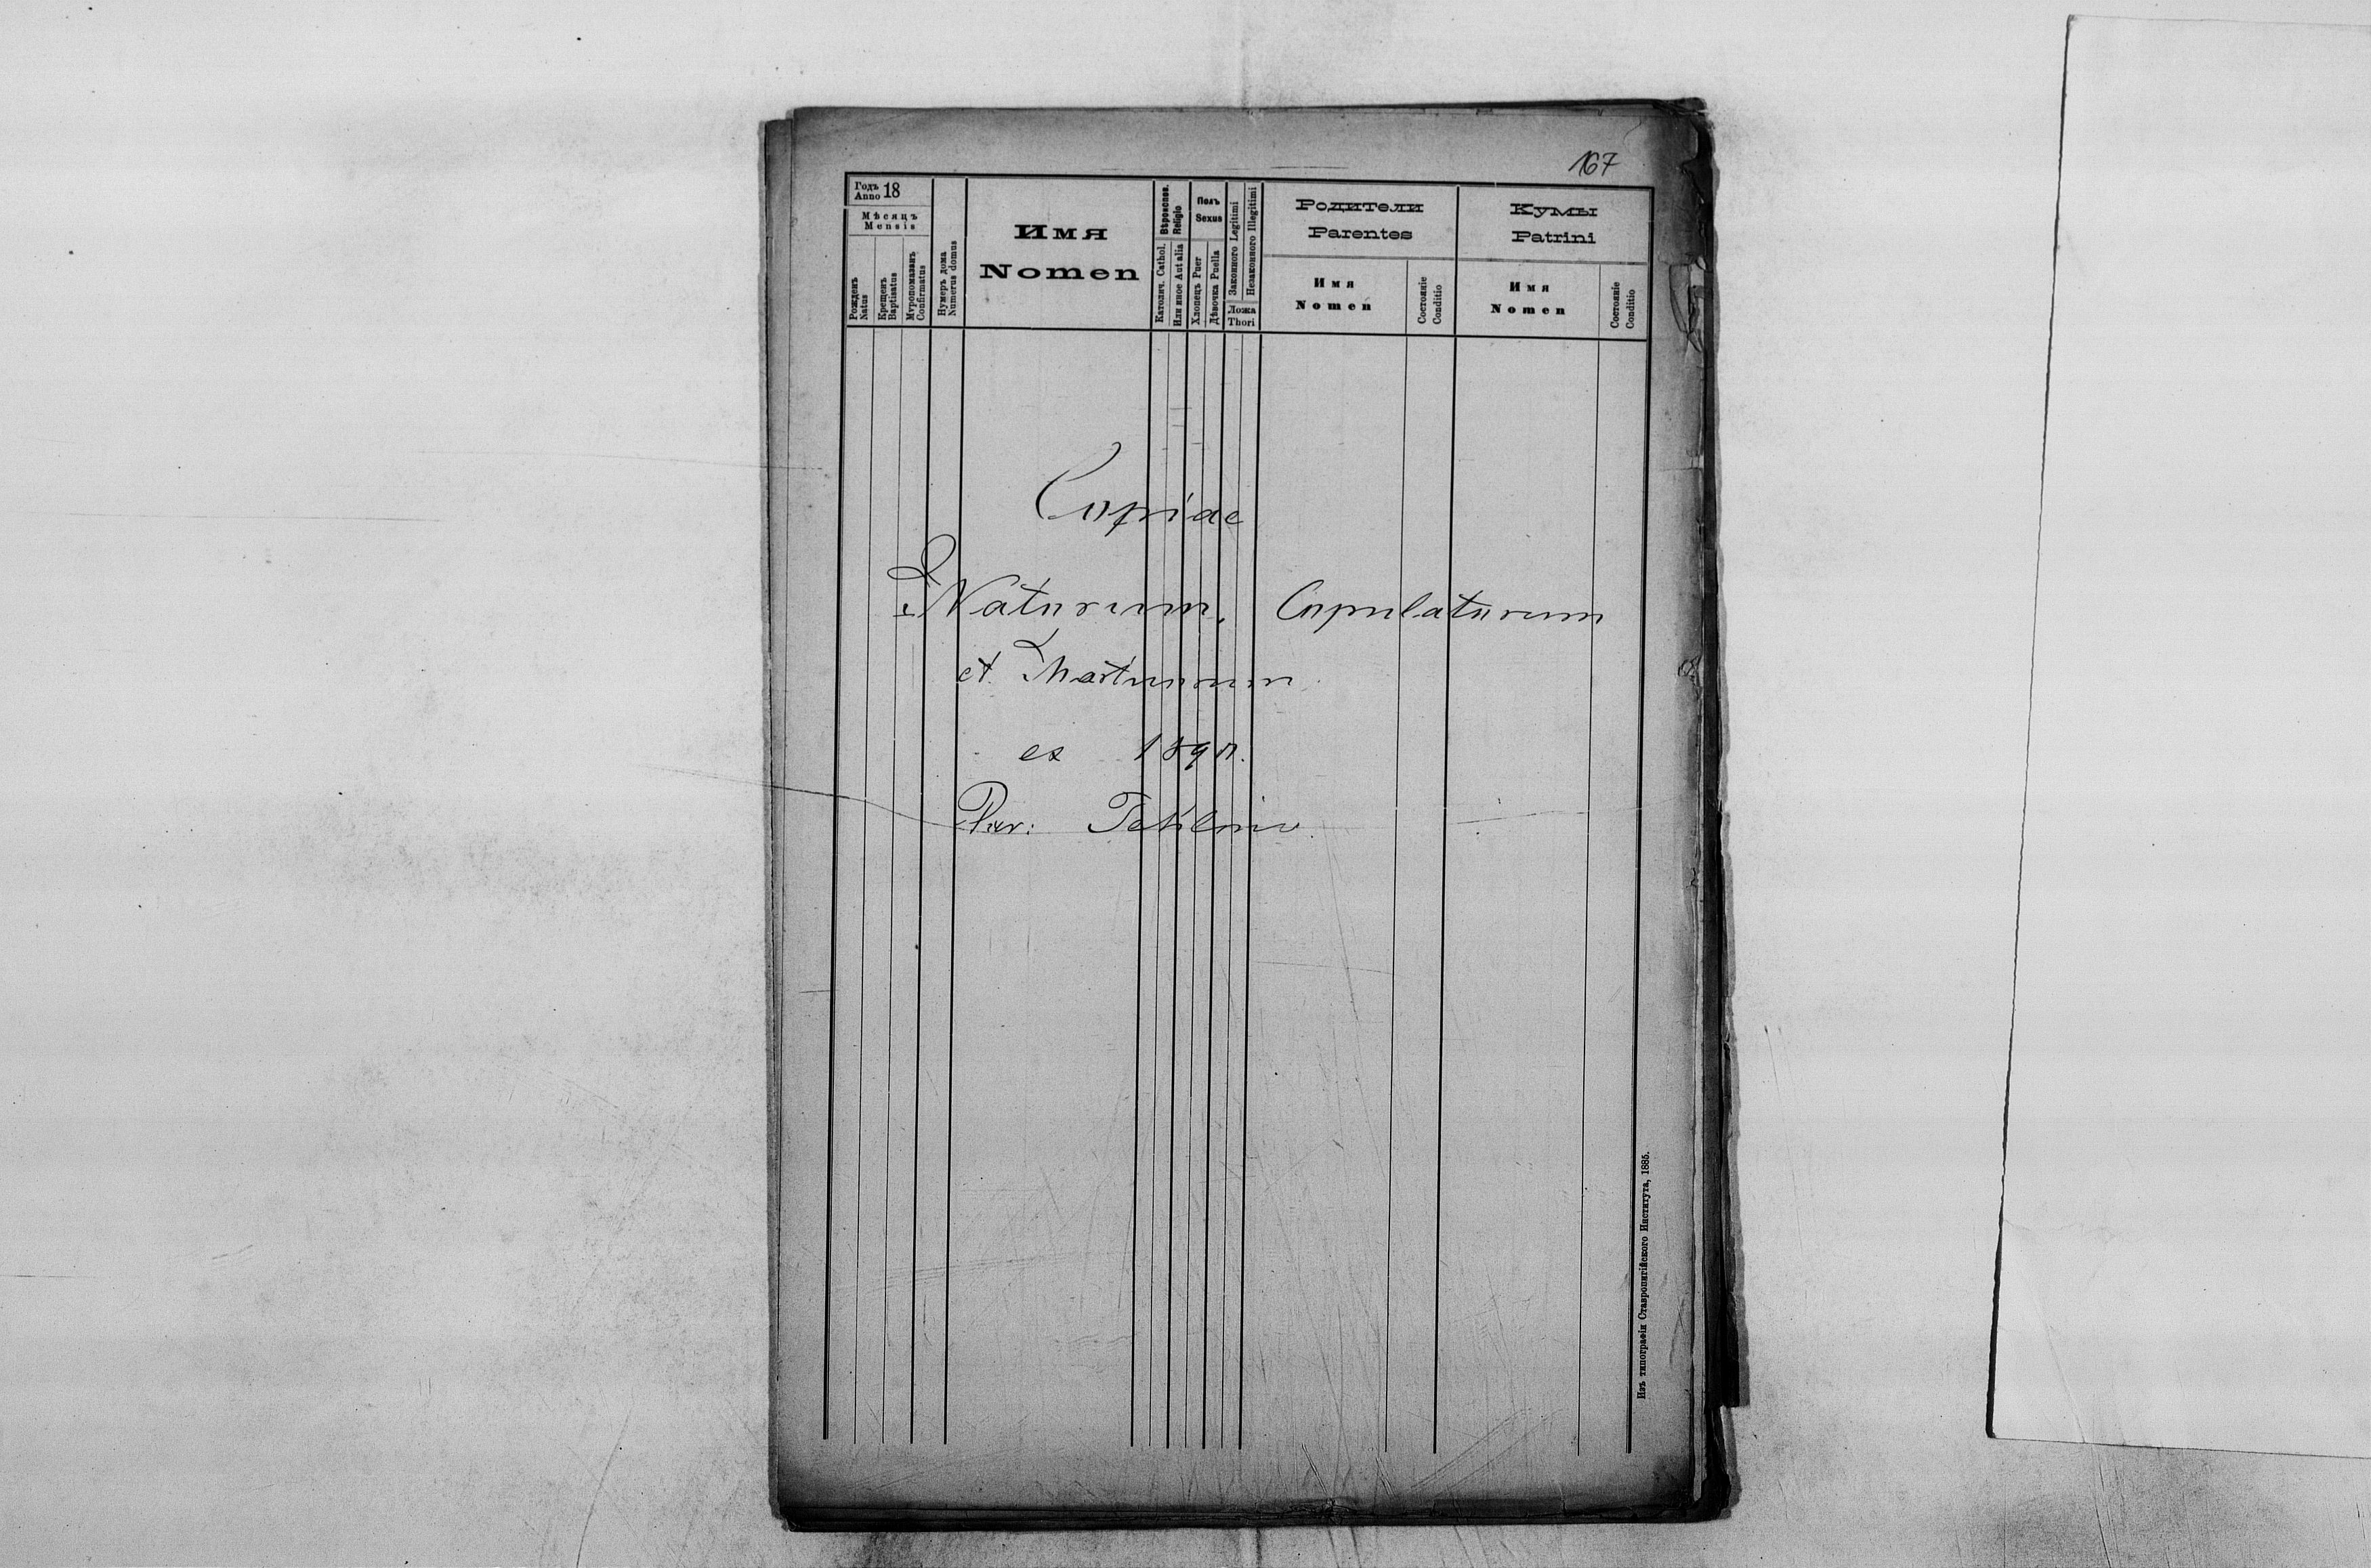 167
Годъ Anno 18
Мѣсяцъ
Mensis
Рожденъ
Natus
Крещенъ
Baptisatus
Мѵропомазанъ
Confirmatus
Нумеръ дома
Numerus domus
Имя
Nomen
Вѣроиспов.
Religio
Католич. Cathol.
Или иное Aut alia
Полъ
Sexus
Хлопецъ Puer
Дѣвочка Puella
Законного Legitimi
Незаконного Illegitimi
Ложа
Thori
Родители
Parentes
Имя
Nomen
Состояніе
Conditio
Кумы
Patrini
Имя
Nomen
Состояніе
Conditio
Copiae
Natorum, Copulatorum
et Mortuorum
ex
Par:
Изъ типографіи Ставропигійского Института, 1885.